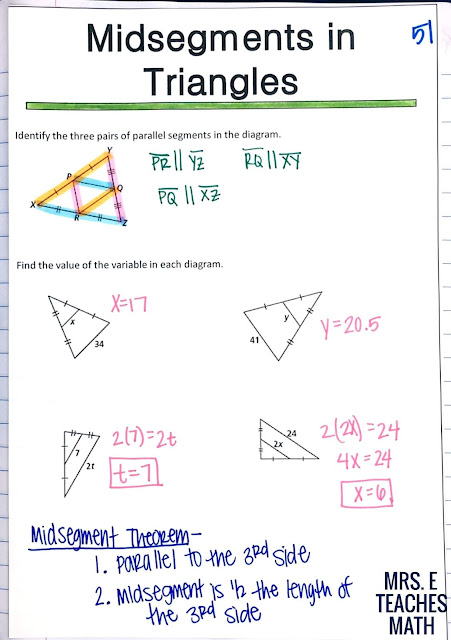 Midsegments in
Triangles
51
Identify the three pairs of parallel segments in the diagram.
Y
P
Q
X
R
Z
PR || YZ
RQ || XY
PQ || XZ
Find the value of the variable in each diagram.
x
34
X=17
41
y
y=20.5
7
2t
2(7)=2t
t=7
24
2x
2(2x)=24
4x=24
x=6
Midsegment Theorem-
1. parallel to the 3rd side
2. midsegment is 1/2 the length of
the 3rd side
MRS. E
TEACHES
MATH